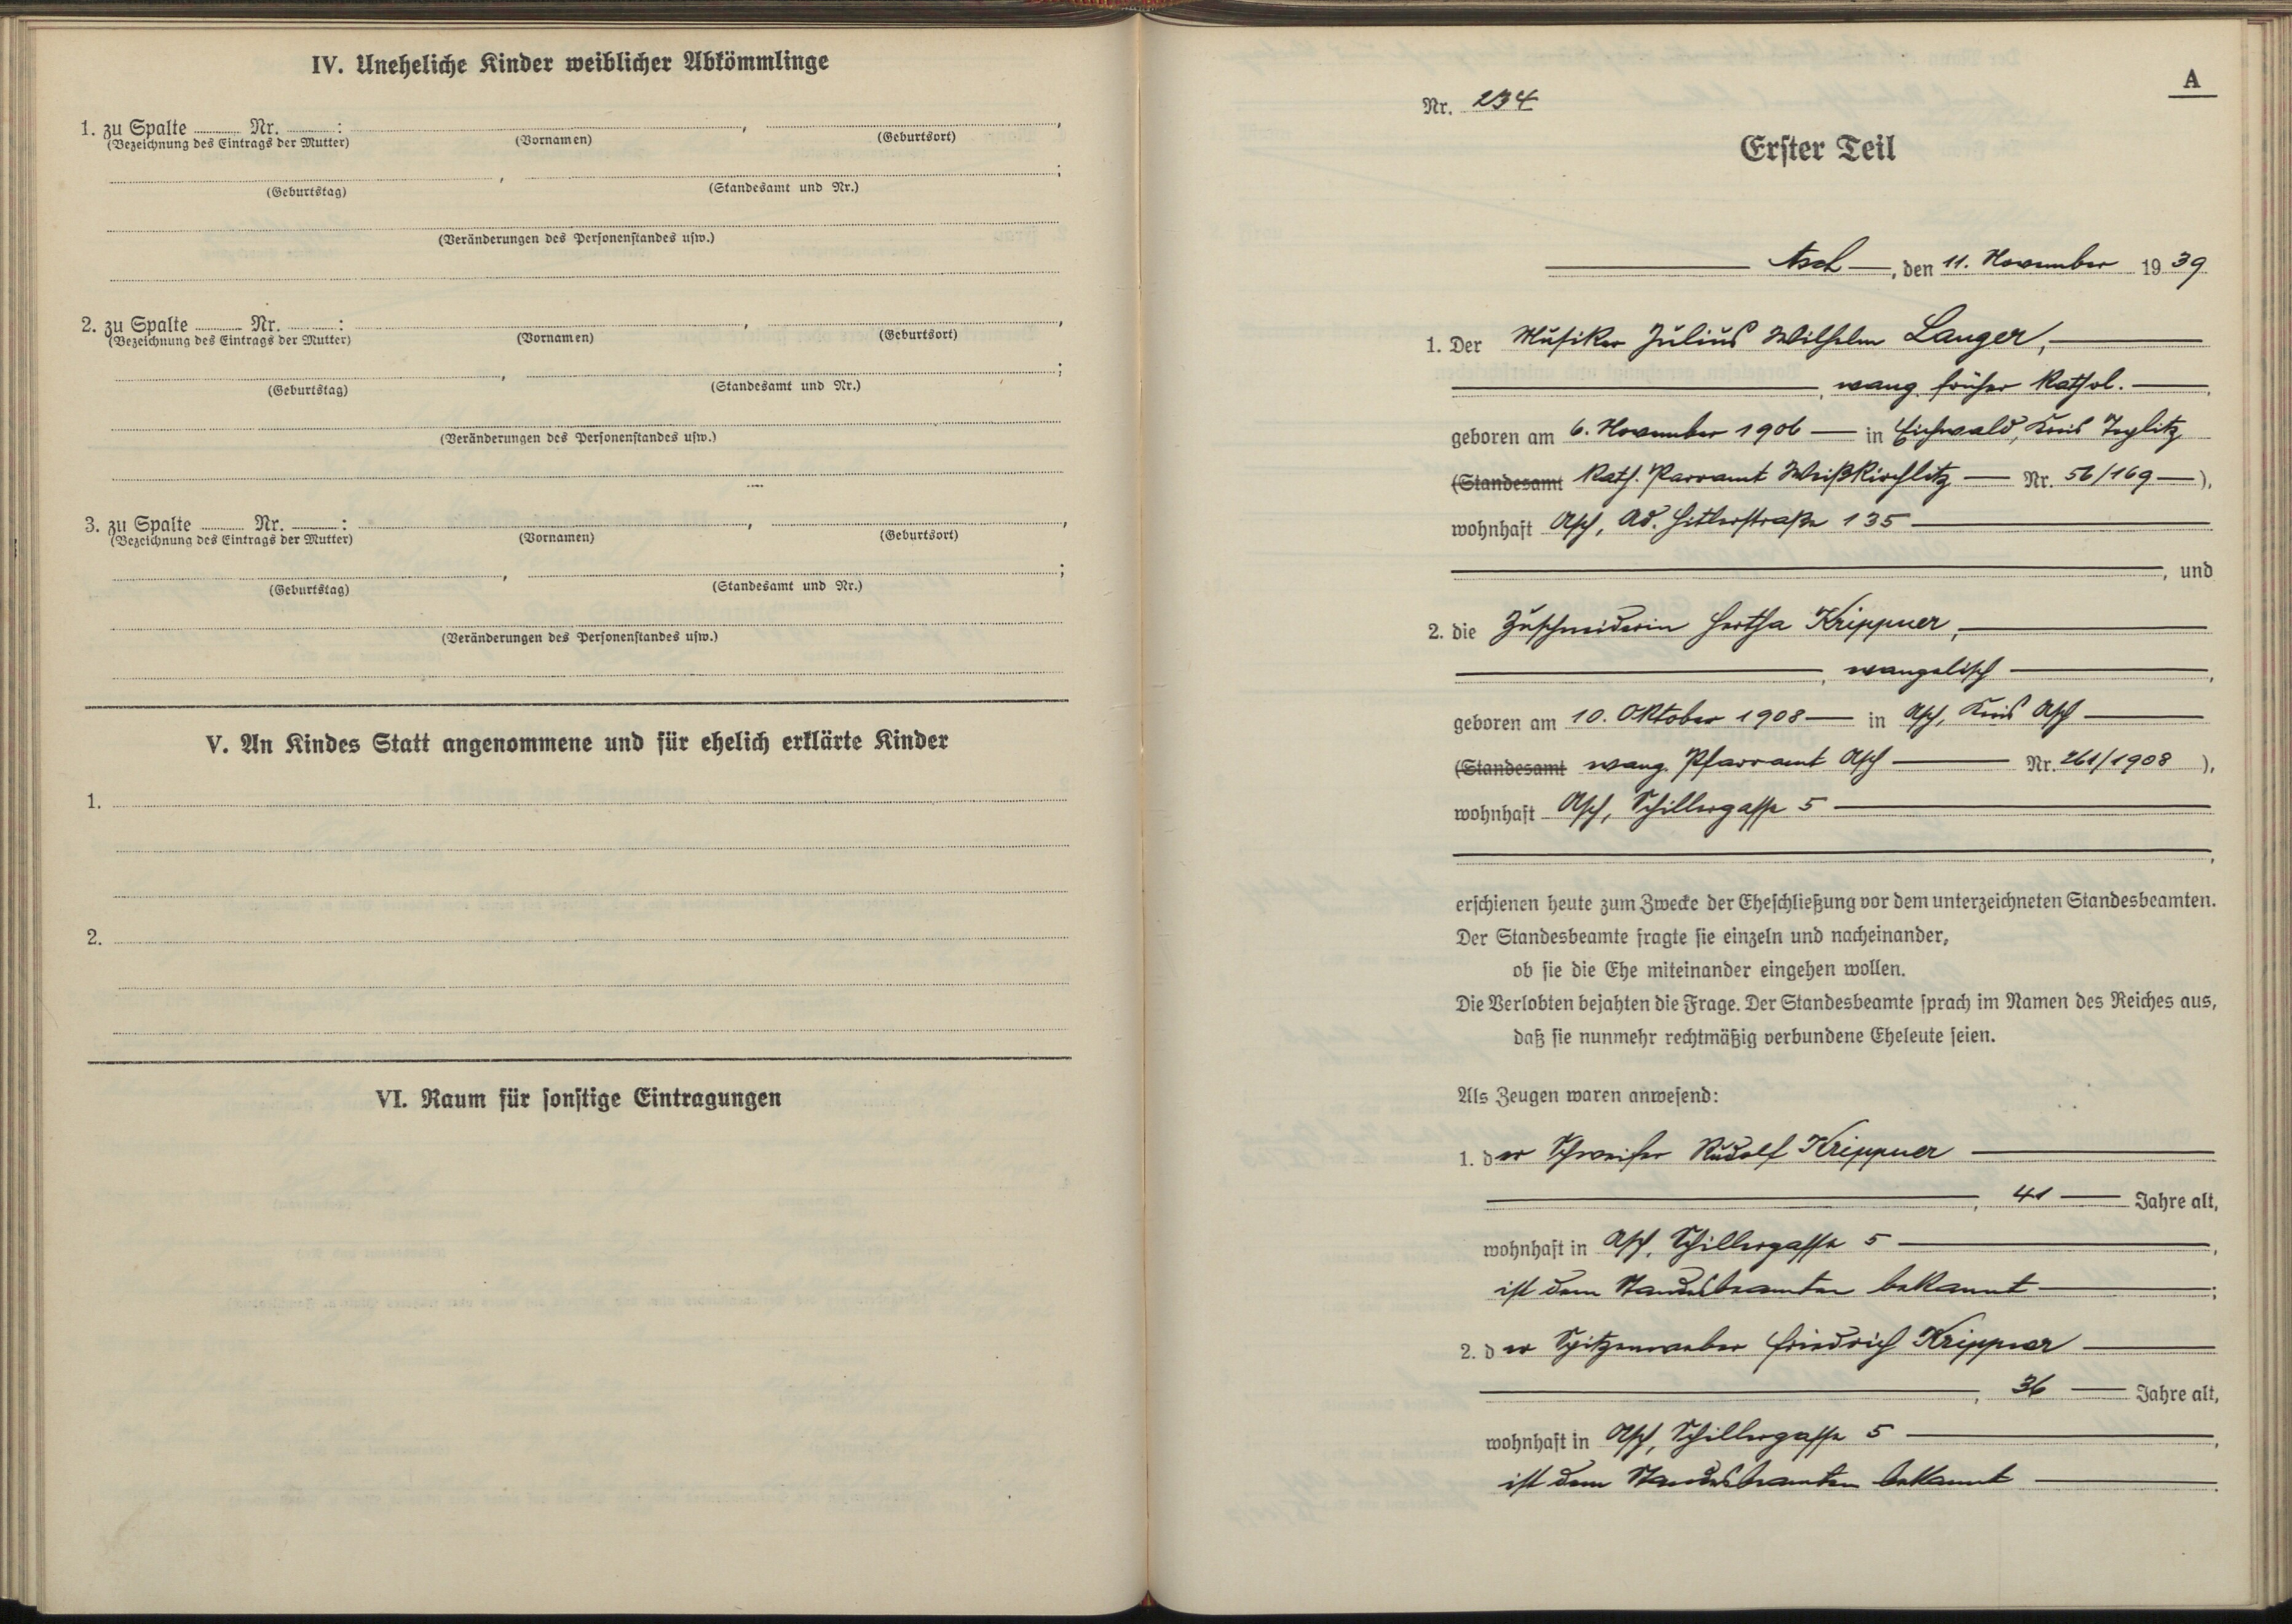 IV. Uneheliche Kinder weiblicher Abkömmlinge
1. zu Spalte Nr. :
(Bezeichnung des Eintrags der Mutter) (Vornamen) (Geburtsort)
(Geburtstag) (Standesamt und Nr.)
(Veränderungen des Personenstandes usw.)
2. zu Spalte Nr. :
(Bezeichnung des Eintrags der Mutter) (Vornamen) (Geburtsort)
(Geburtstag) (Standesamt und Nr.)
(Veränderungen des Personenstandes usw.)
3. zu Spalte Nr. :
(Bezeichnung des Eintrags der Mutter) (Vornamen) (Geburtsort)
(Geburtstag) (Standesamt und Nr.)
(Veränderungen des Personenstandes usw.)
V. An Kindes Statt angenommene und für ehelich erklärte Kinder
1.
2.
VI. Raum für sonstige Eintragungen
A
Nr. 234
Erster Teil
Asch, den 11. November 1939
1. Der Musiker Julius Wilhelm Langer,
, evang. früher kathol.
geboren am 6. November 1906 in Eichwald, Kreis
(Standesamt Kath. Weißkirchlitz Nr. 56/169),
wohnhaft Asch, Ad. Hitlerstraße 135
, und
2. die Zuschneiderin Hertha Krippner,
, evangelisch,
geboren am 10. Oktober 1908 in Asch, Kreis Asch
(Standesamt evang. Pfarramt Asch Nr. 261/1908),
wohnhaft Asch, Schillergasse 5
,
erschienen heute zum Zwecke der Eheschließung vor dem unterzeichneten Standesbeamten.
Der Standesbeamte fragte sie einzeln und nacheinander,
ob sie die Ehe miteinander eingehen wollen.
Die Verlobten bejahten die Frage. Der Standesbeamte sprach im Namen des Reiches aus,
daß sie nunmehr rechtmäßig verbundene Eheleute seien.
Als Zeugen waren anwesend:
1. der Schweifer Rudolf Krippner
, 41 Jahre alt,
wohnhaft in Asch, Schillergasse 5,
ist dem Standesbeamten bekannt;
2. der Spitzenweber Friedrich Krippner
, 36 Jahre alt,
wohnhaft in Asch, Schillergasse 5,
ist dem Standesbeamten bekannt.